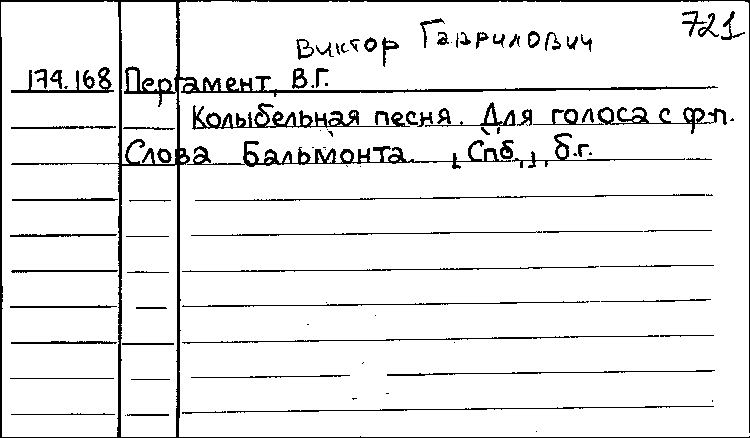 721
Виктор Гаврилович
174.168 Пергамент, В.Г.
Колыбельная песня. Для голоса с ф-п.
Слова Бальмонта. [Спб.], б.г.